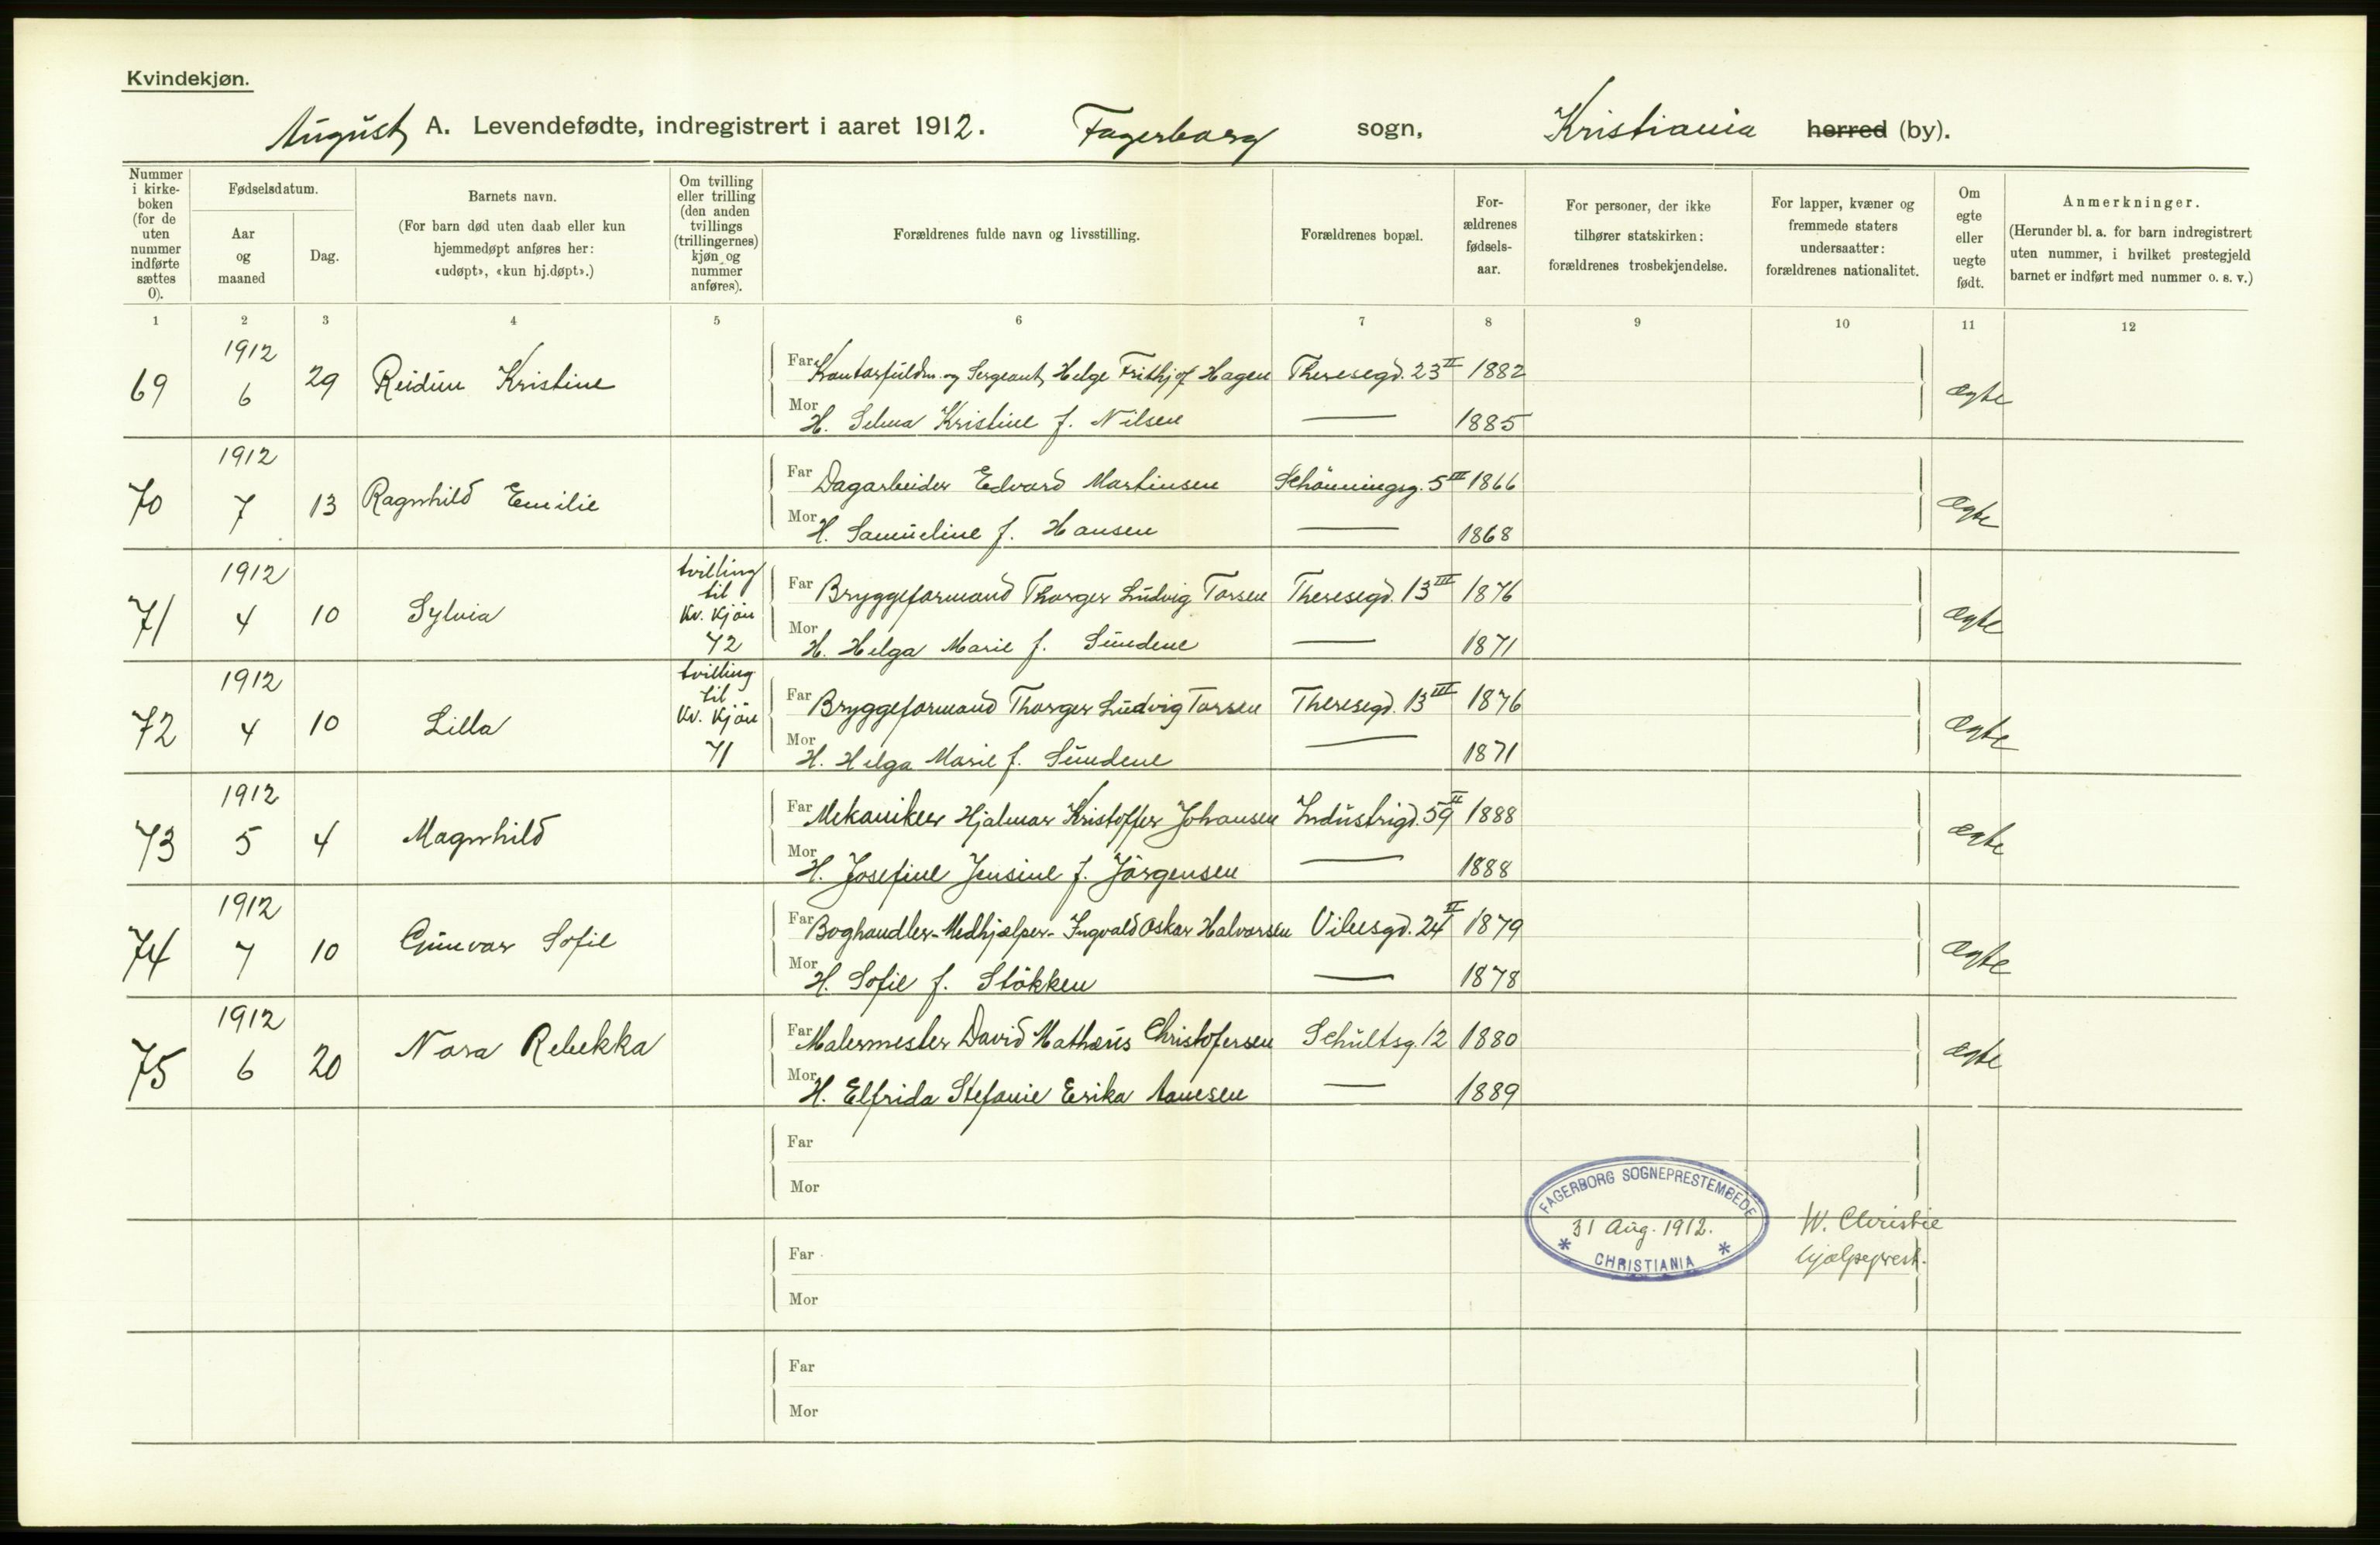 Kvindekjøn.
August A. Levendefødte, indregistrert i aaret 1912. Fagerborg sogn, Kristiania herred (by).
Nummer i kirke- boken (for de uten nummer indførte sættes 0).
Fødselsdatum.
Aar og maaned
Dag.
Barnets navn.
(For barn død uten daab eller kun hjemmedøpt anføres her: «udøpt», «kun hj.døpt».)
Om tvilling eller trilling (den anden tvillings (trillingernes) kjøn og nummer anføres).
Forældrenes fulde navn og livsstilling.
Forældrenes bopæl.
For- ældrenes fødsels- aar.
For personer, der ikke tilhører statskirken: forældrenes trosbekjendelse.
For lapper, kvæner og fremmede staters undersaatter: forældrenes nationalitet.
Om egte eller uegte født.
Anmerkninger.
(Herunder bl. a. for barn indregistrert uten nummer, i hvilket prestegjeld barnet er indført med nummer o. s. v.)
1 2 3 4 5 6 7 8 9 10 11 12
69 1912 6 29 Reidun Kristine
Far Kontorfuldm. og Sergeant Helge Frithjof Hagen Theresegd. 23 II 1882
Mor H. Selma Kristine f. Nilsen — 1885 ægte
70 1912 7 13 Ragnhild Emilie
Far Dagarbeider Edvard Martinsen Schönningsg. 5 III 1866
Mor H. Samueline f. Hansen — 1868 ægte
71 1912 4 10 Sylvia tvilling til kv. kjön 72
Far Bryggeformand Thorger Ludvig Torsen Theresegd. 13 III 1876
Mor H. Helga Marie f. Sundene — 1871 ægte
72 1912 4 10 Lilla tvilling til kv. kjön 71
Far Bryggeformand Thorger Ludvig Torsen Theresegd. 13 III 1876
Mor H. Helga Marie f. Sundene — 1871 ægte
73 1912 5 4 Magnhild
Far Mekaniker Hjalmar Kristoffer Johansen Industrigd. 59 II 1888
Mor H. Josefine Jensine f. Jörgensen — 1888 ægte
74 1912 7 10 Gunvor Sofie
Far Boghandler-Medhjælper- Ingvald Oskar Halvorsen Vibesgd. 24 II 1879
Mor H. Sofie f. Stökken — 1878 ægte
75 1912 6 20 Nora Rebekka
Far Malermester David Mathæus Christofersen Schultsg. 12 1880
Mor H. Elfrida Stefanie Erika Aanesen — 1889 ægte
Far
Mor
FAGERBORG SOGNEPRESTEMBEDE
31 Aug. 1912.
* CHRISTIANIA *
W. Christie
hjælpeprest.
Far
Mor
Far
Mor